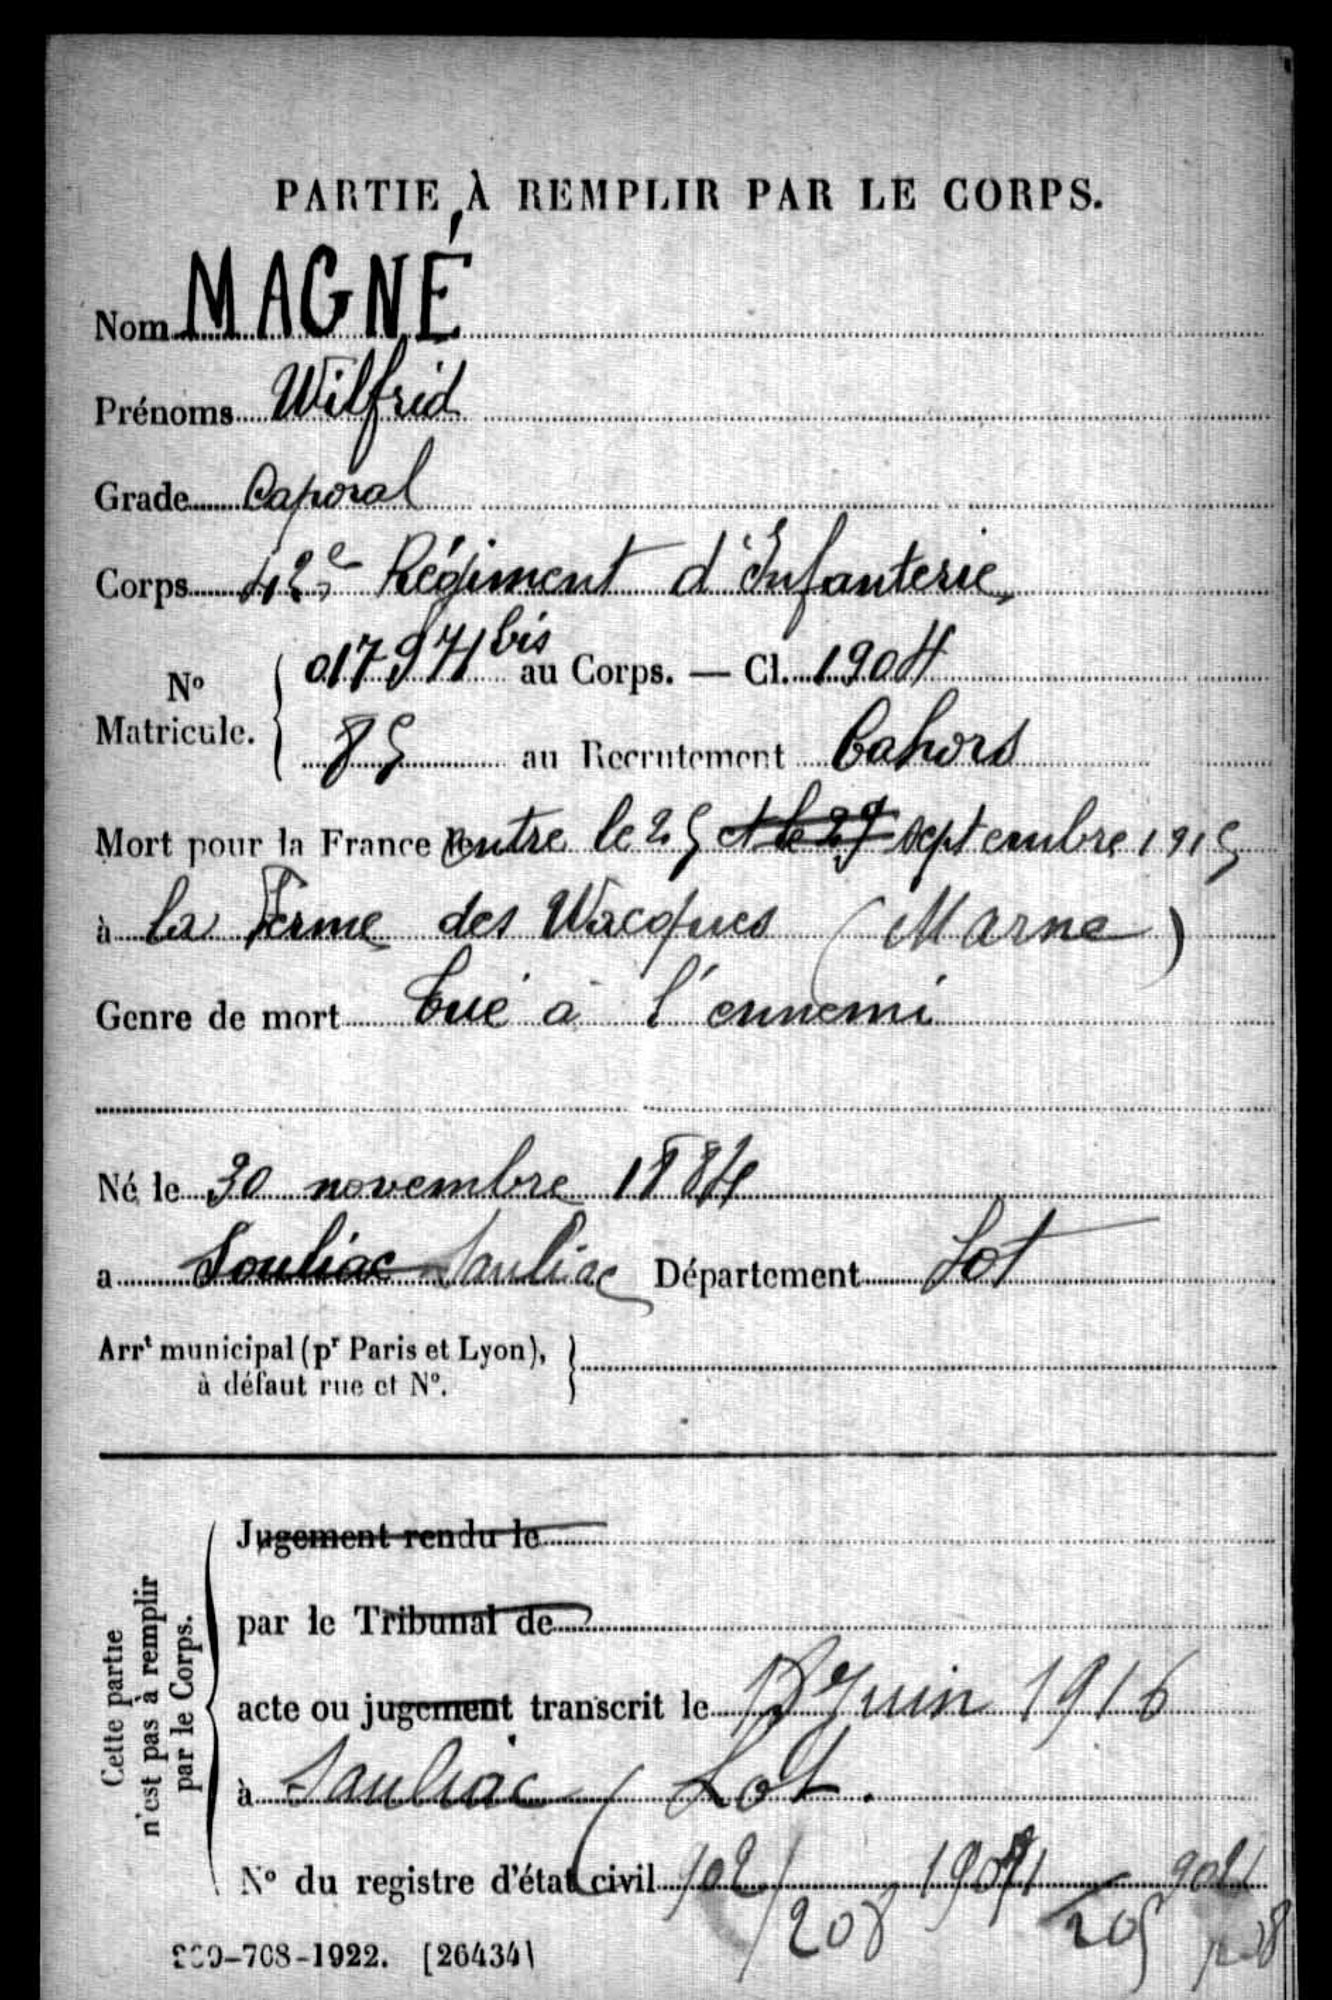 PARTIE À REMPLIR PAR LE CORPS.
Nom MAGNÉ
Prénoms Wilfrid
Grade Caporal
Corps 42e Régiment d'Infanterie
No Matricule. 017971 bis au Corps. — Cl. 1904
85 au Recrutement Cahors
Mort pour la France entre le 25 et le 29 septembre 1915
à la Ferme des Wacques (Marne)
Genre de mort tué à l'ennemi
Né le 30 novembre 1884
a Souliac Sauliac Département Lot
Arrt municipal (pr Paris et Lyon),
à défaut rue et No.
Cette partie
n'est pas à remplir
par le Corps.
Jugement rendu le
par le Tribunal de
acte ou jugement transcrit le Juin 1916
à Sauliac (Lot.
No du registre d'état civil
208
-708-1922. [26434]